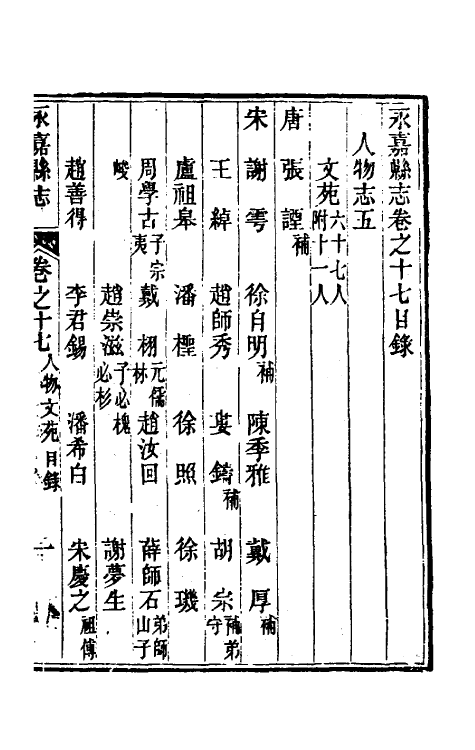 永嘉縣志卷之十七目錄
人物志五
文苑六十七人附十一人
唐 張諲補
宋 謝雩 徐自明補 陳季雅 戴厚補
王綽 趙師秀 婁鑄補 胡宗補弟守
盧祖皋 潘檉 徐照 徐璣
周學古子宗夷 戴栩元儒林 趙汝回 薛師石弟師山子
峻 趙崇滋子必槐必杉 謝夢生
趙善得 李君錫 潘希白 宋慶之祖傅
永嘉縣志 卷之十七人物文苑目錄 一